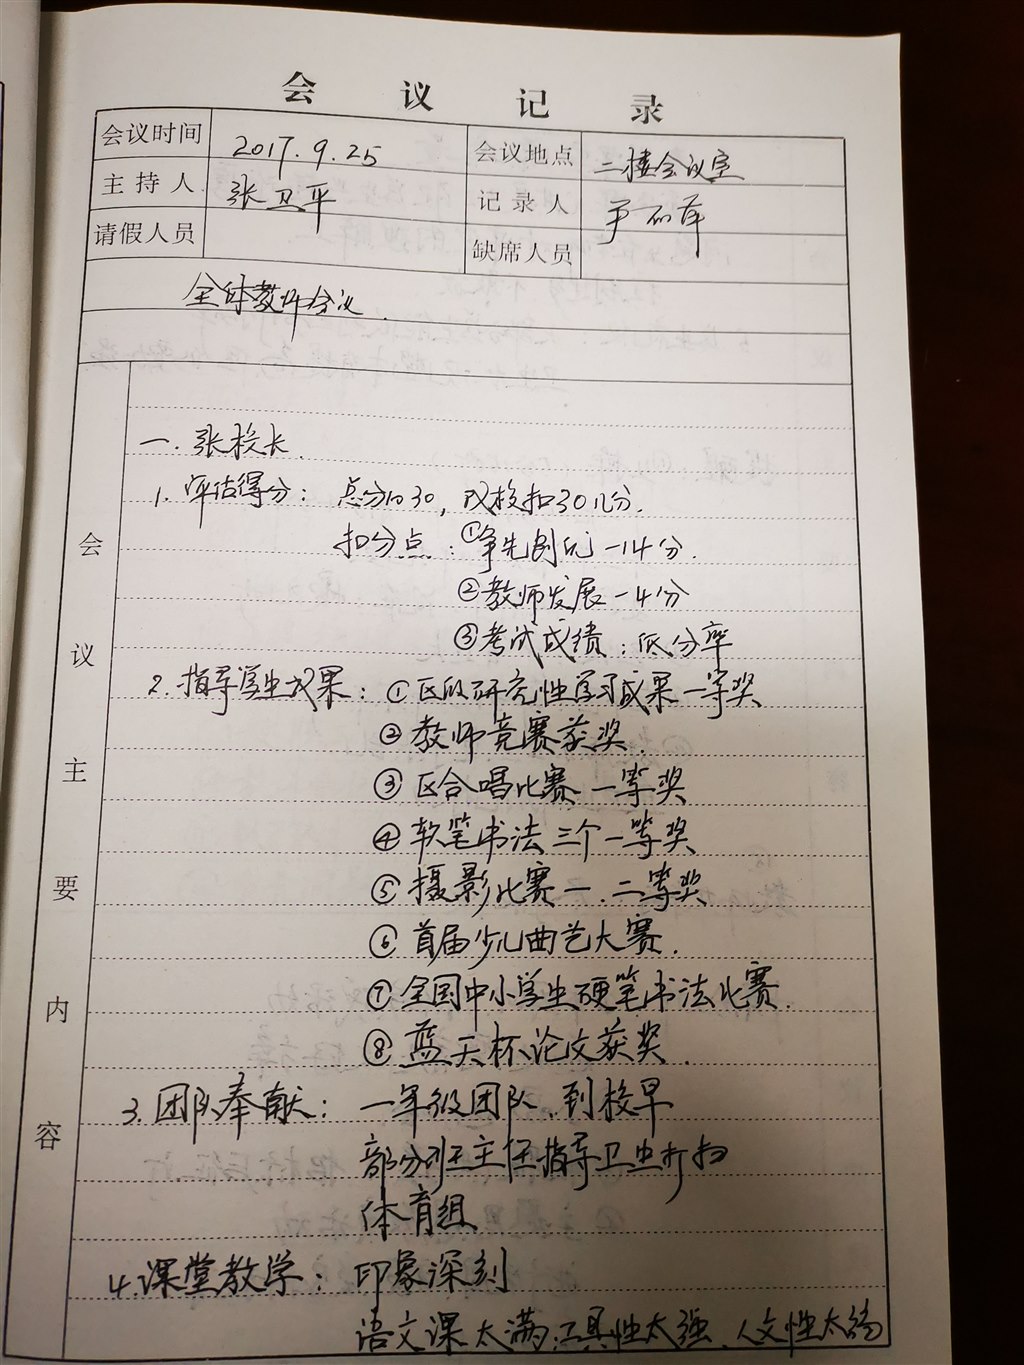 会议记录
会议时间 2017.9.25 会议地点 二楼会议室
主持人 张卫平 记录人
请假人员 缺席人员
全体教师会议.
会议主要内容
一.张校长.
1.评估得分: 总分1030,我校扣30几分.
扣分点:①争先创优-14分.
②教师发展-4分
③考试成绩:低分率
2.指导学生成果:①区级研究性学习成果一等奖
②教师竞赛获奖.
③区合唱比赛一等奖
④软笔书法三个一等奖
⑤摄影比赛一.二等奖
⑥首届少儿曲艺大赛.
⑦全国中小学生硬笔书法比赛.
⑧蓝天杯论文获奖.
3.团队奉献: 一年级团队.到校早
部分班主任指导卫生打扫
体育组
4.课堂教学: 印象深刻
语文课太满,工具性太强.人文性太弱